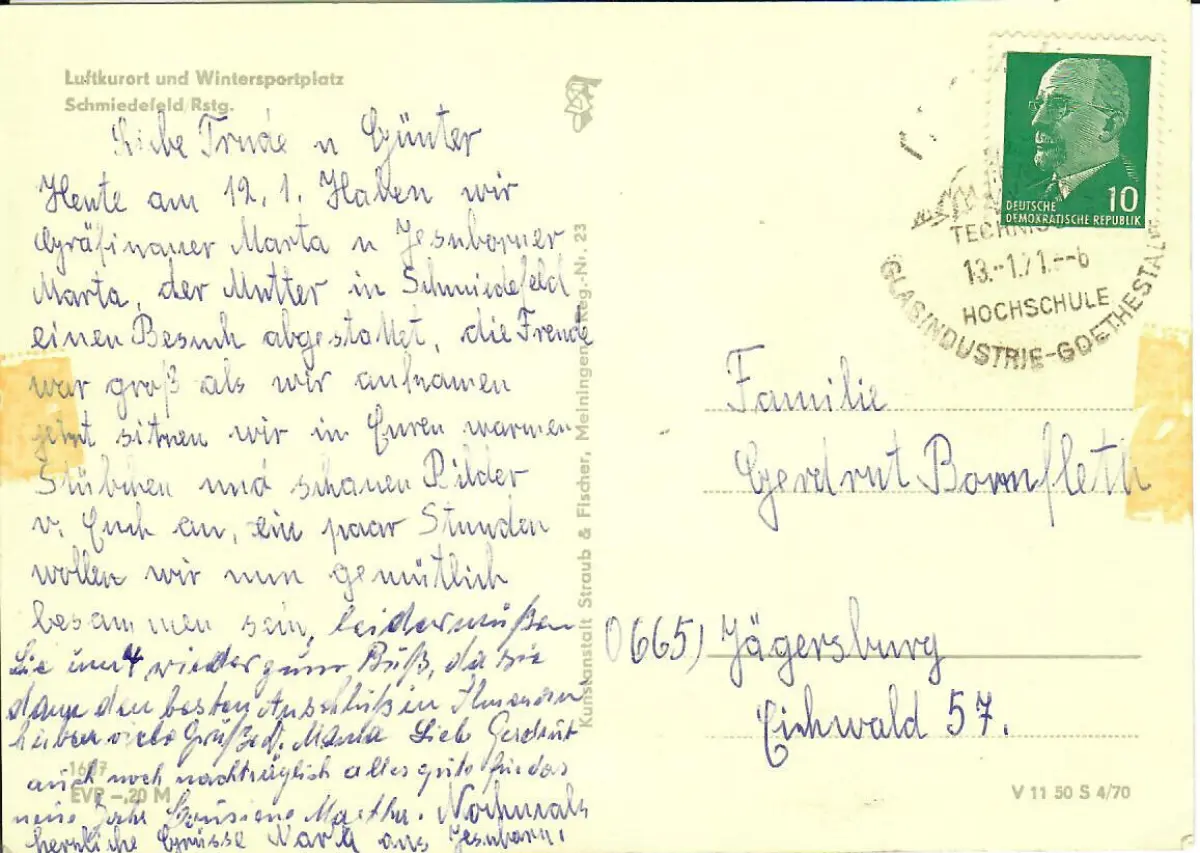 Luftkurort und Wintersportplatz
Schmiedefeld/Rstg.
Liebe Trude u Günter
Heute am 12. 1. Haben wir
Gräfinauer Marta u Jesuborner
Marta, der Mutter in Schmiedefeld
einen Besuch abgestattet, die Freude
war groß als wir aufnamen
jetzt sitzen wir in Euren warmen
Stübchen und schauen Bilder
v. Euch an, ein paar Stunden
wollen wir nun gemütlich
besammen sein, leider müßen
Sie um 4 wieder zum Buß, da sie
dann den besten Anschluß in Ilmenau
haben viele Grüße d. Mama Liebe Gerdrut
auch noch nachträglich alles gute für das
neue Jahr Cousiene Martha. Nochmals
herzliche Grüsse Marta aus Jesuborn.
1697
EVP –,20 M
Kunstanstalt Straub & Fischer, Meiningen Reg.-Nr. 23
DEUTSCHE
DEMOKRATISCHE REPUBLIK
10
TECHNISC
13.-1.71.--6
HOCHSCHULE
GLASINDUSTRIE-GOETHESTÄ
Familie
Gerdrut Bornfleth
0665) Jägersburg
Eichwald 57.
V 11 50 S 4/70